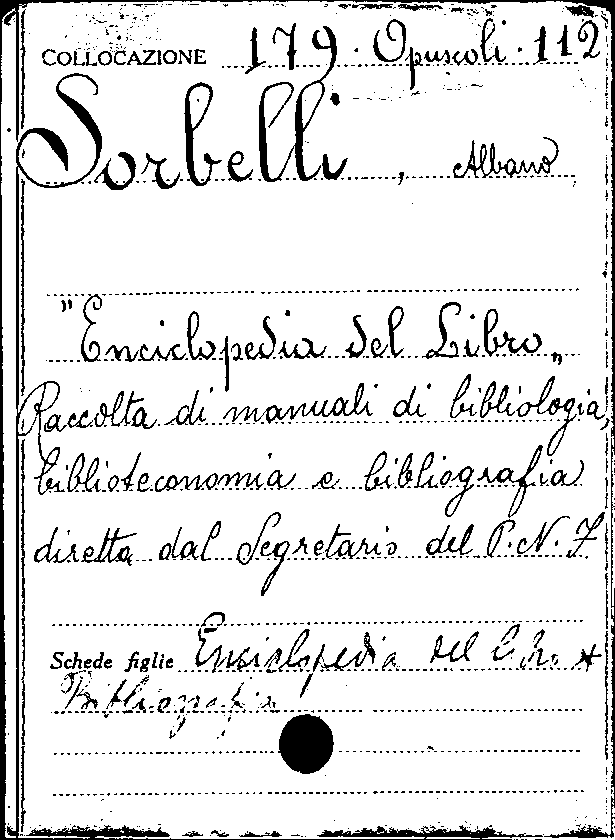 COLLOCAZIONE 179. Opuscoli. 112
Sorbelli, Albano
"Enciclopedia del Libro„
Raccolta di manuali di bibliologia,
biblioteconomia e bibliografia
diretta dal Segretario del P.N.F
Schede figlie Enciclopedia del
Bibliografia